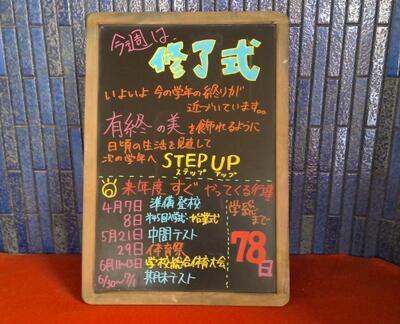 今週は
修了式
いよいよ 今の学年の終りが
近づいています。
有終の美を飾れるように
日頃の生活を見直して
次の学年へ STEP UP
ステップ アップ
来年度 すぐ やってくる行事
4月7日 準備登校
8日 入学式・始業式
5月21日 中間テスト
29日 体育祭
6月11~13日 学校総合体育大会
6/30~7/1 期末テスト
学総
まで
78日